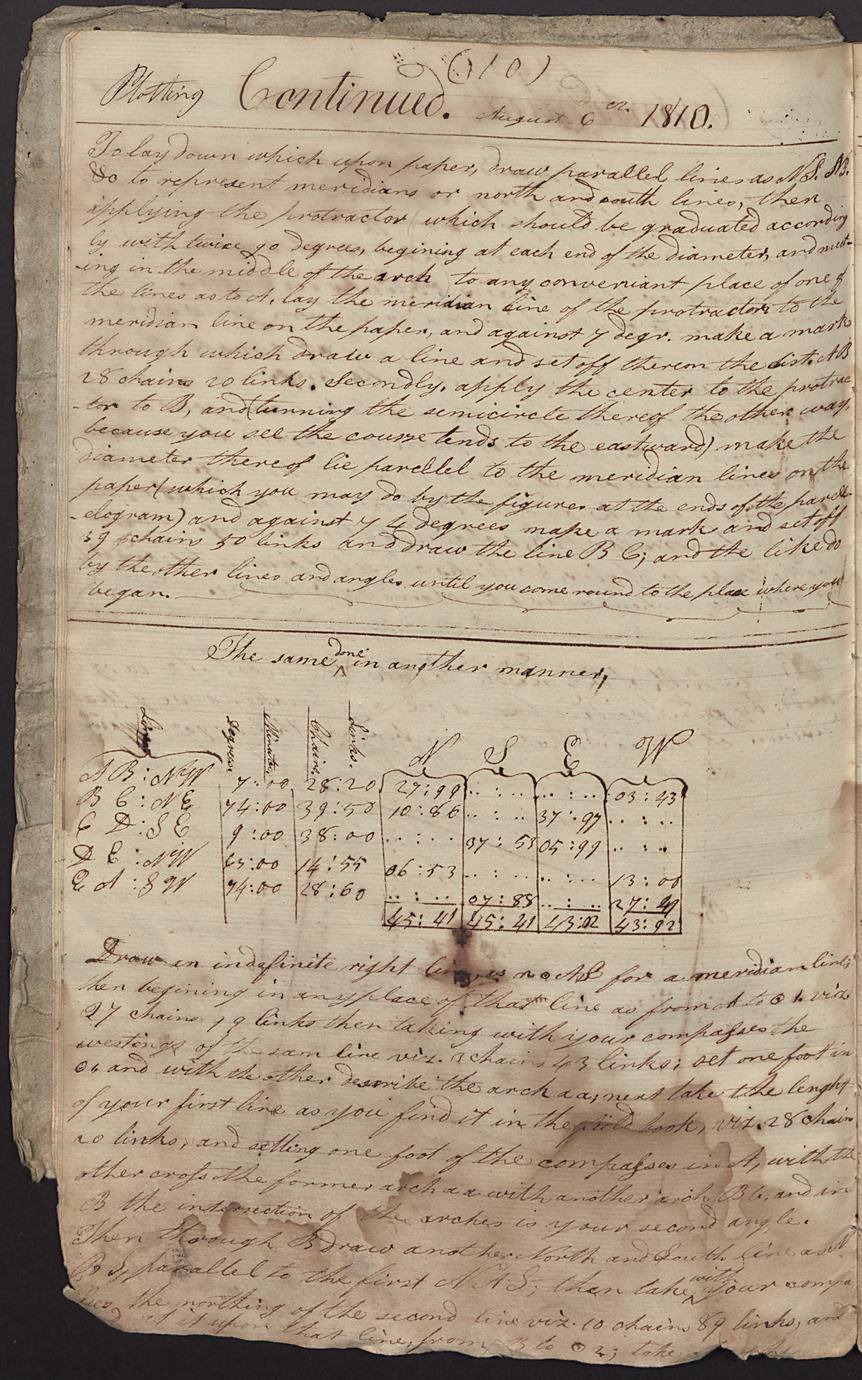 (10)
Plotting Continued. August 6th 1810.
To lay down which upon paper, draw parallel lines as N.S. N.S.
&c to represent meridians or north and south lines, then
applying the protractor (which should be graduated according
ly with twice 90 degrees, begining at each end of the diameter, and meet-
ing in the middle of the arch to any conveniant place of one of
the lines as to A, lay the meridian line of the protractor to the
meridian line on the paper, and against 7 degr. make a mark
through which draw a line and set off thereon the dist. AB
28 chains 20 links. Secondly, apply the center to the protrac
-tor to B, and (turning the semicircle thereof the other way,
because you see the course tends to the eastward) make the
diameter thereof lie parcllel to the meridian lines on the
paper (which you may do by the figures at the ends of the parell-
elogram) and against 74 degrees make a mark and set off
39 chains 50 links and draw the line B C; and the like do
by the other lines and angles until you come round to the place where you
began.
The same done in another manner,
Lines Degrees Minutes Chains Links. N S E W
A B : NW 7:00 28:20 27:99 ..:.. ..:.. 03:43
B C : NE 74:00 39:50 10:86 ..:.. 37:97 ..:..
C D : S E 9:00 38:00 ..:.. 37:53 05:99 ..:..
D E : NW 63:00 14:55 06:53 ..:.. ..:.. 13:00
E A : S W 74:00 28:60 ..:.. 07:88 ..:.. 27:49
45:41 45:41 43:02 43:92
Draw an indefinite right line as n A S for a meridian line;
then begining in any place of that line as from A to 1 viz
27 chains 99 links then taking with your compasses the
westings of the sam line viz. 3 chains 43 links; set one foot in
and with the other describe the arch a a, next take the lenght
of your first line as you find it in the field book, viz. 28 chain
20 links, and setting one foot of the compasses in A, with the
other cross the former arch a a with another arch B b, and in
B the intersection of the arches is your second angle.
Then through B draw another North and South line as N
B S, parallel to the first N A S; then take with your compa
sses the northing of the second line viz. 10 chains 89 links, and
it upon that line, from B to 2; take